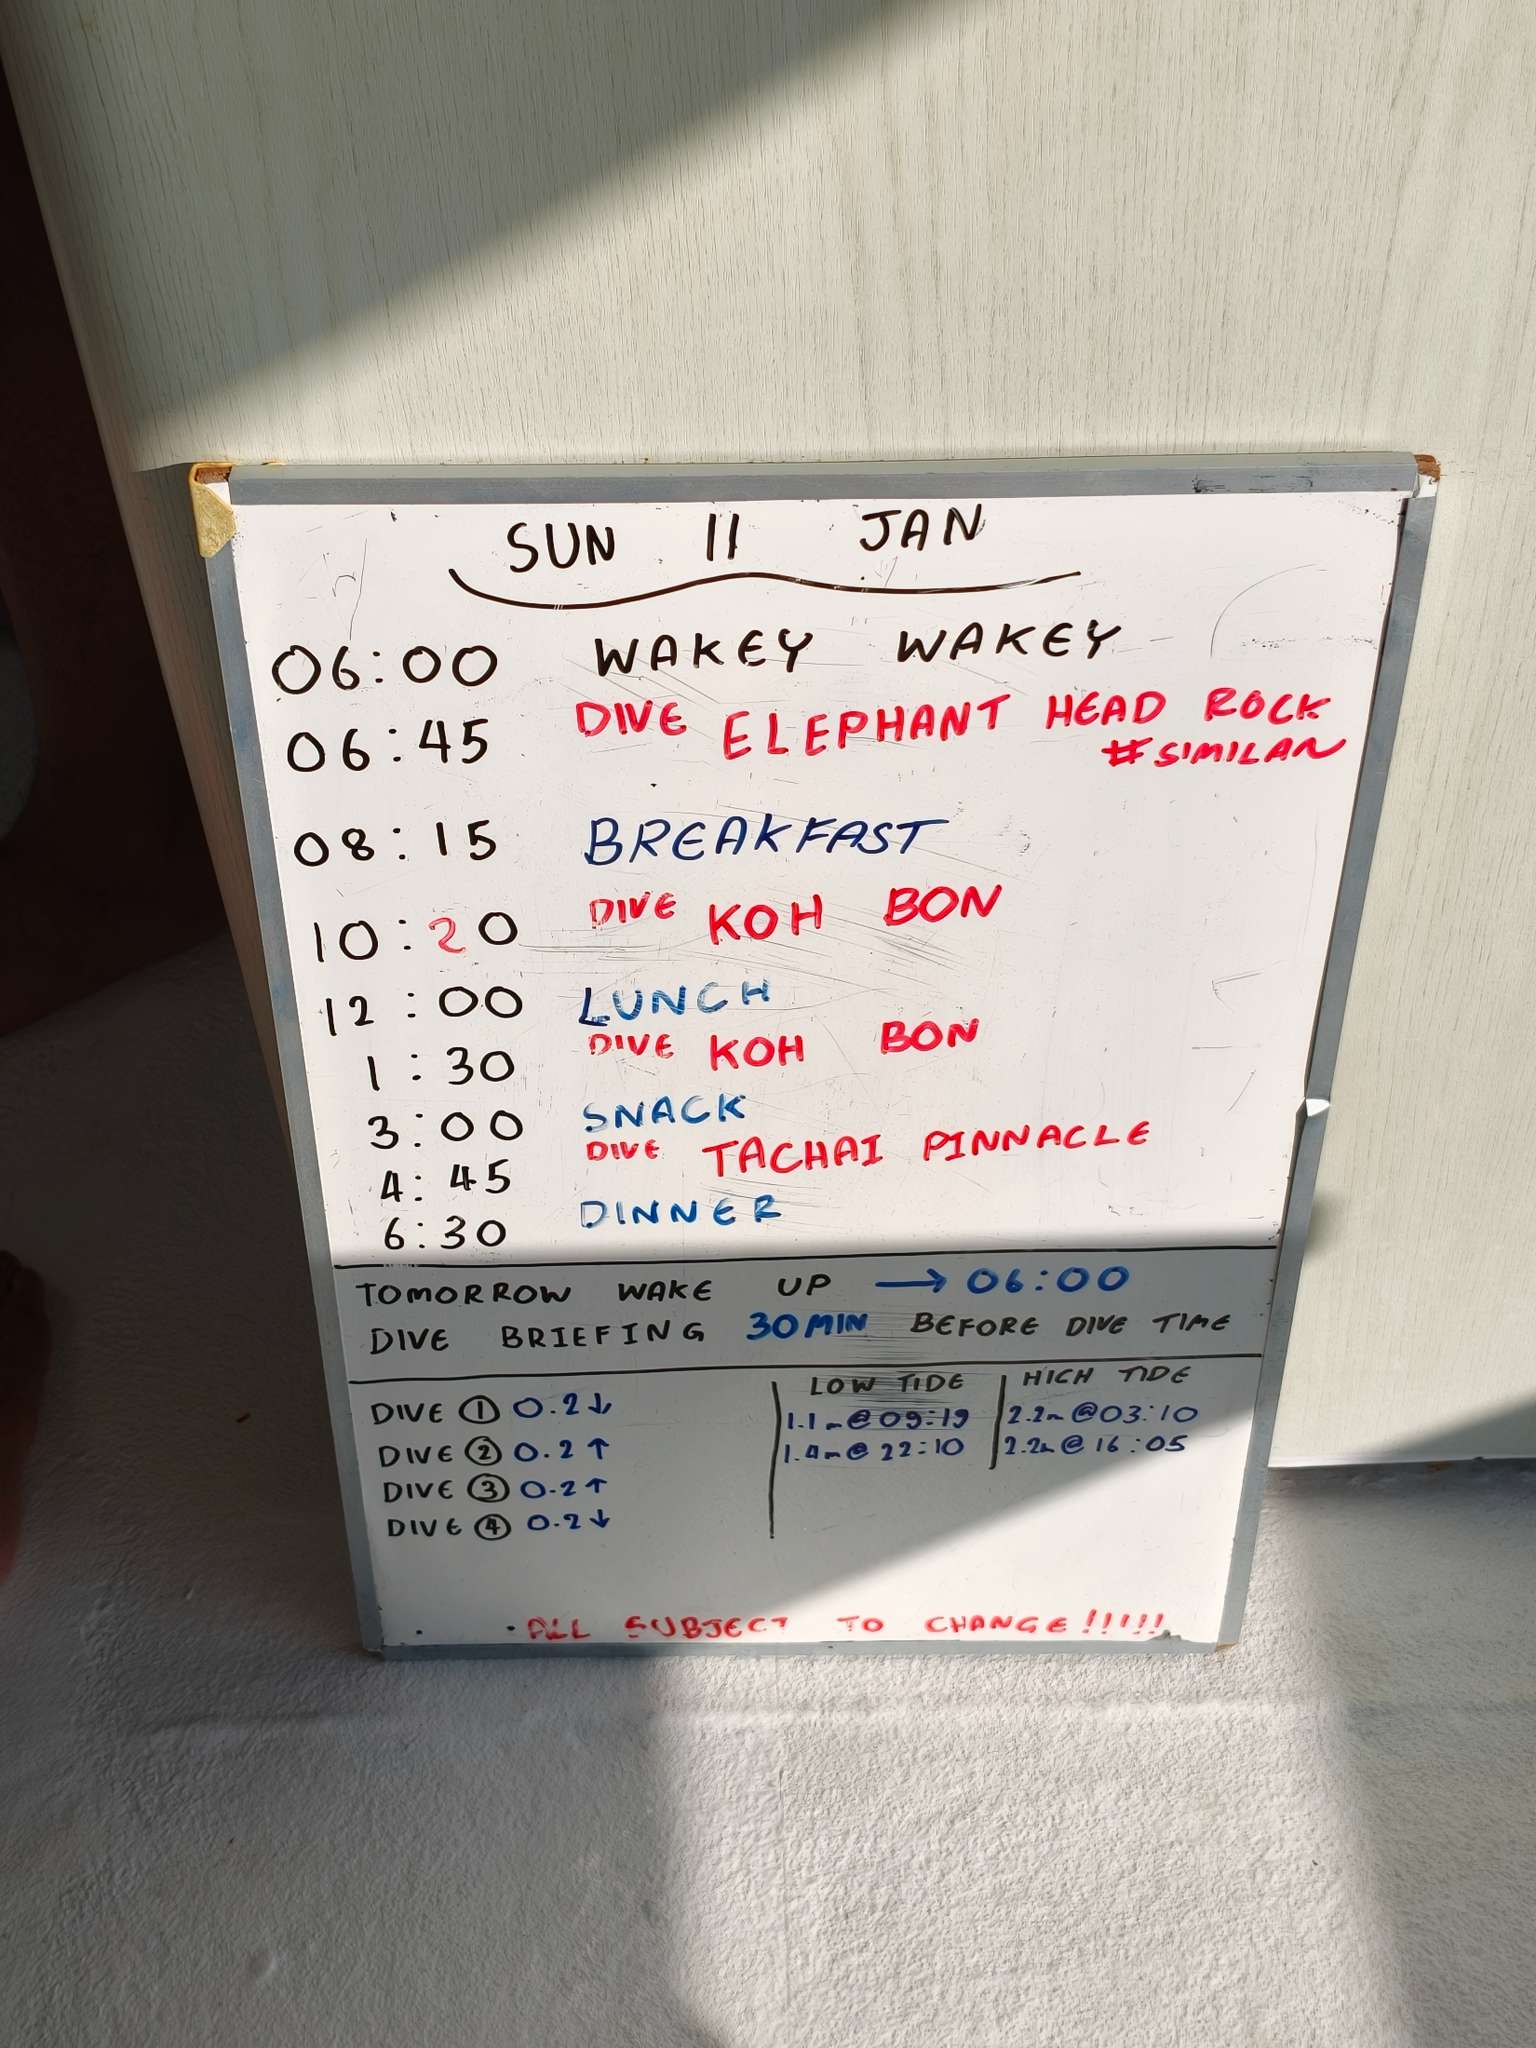 SUN 11 JAN
06:00 WAKEY WAKEY
06:45 DIVE ELEPHANT HEAD ROCK
#SIMILAN
08:15 BREAKFAST
10:20 DIVE KOH BON
12:00 LUNCH
1:30 DIVE KOH BON
3:00 SNACK
4:45 DIVE TACHAI PINNACLE
6:30 DINNER
TOMORROW WAKE UP → 06:00
DIVE BRIEFING 30MIN BEFORE DIVE TIME
LOW TIDE HIGH TIDE
DIVE ① 0.2↓ 1.1m@09:19 2.2m@03:10
DIVE ② 0.2↑ 1.4m@22:10 2.2m@16:05
DIVE ③ 0.2↑
DIVE ④ 0.2↓
ALL SUBJECT TO CHANGE!!!!!